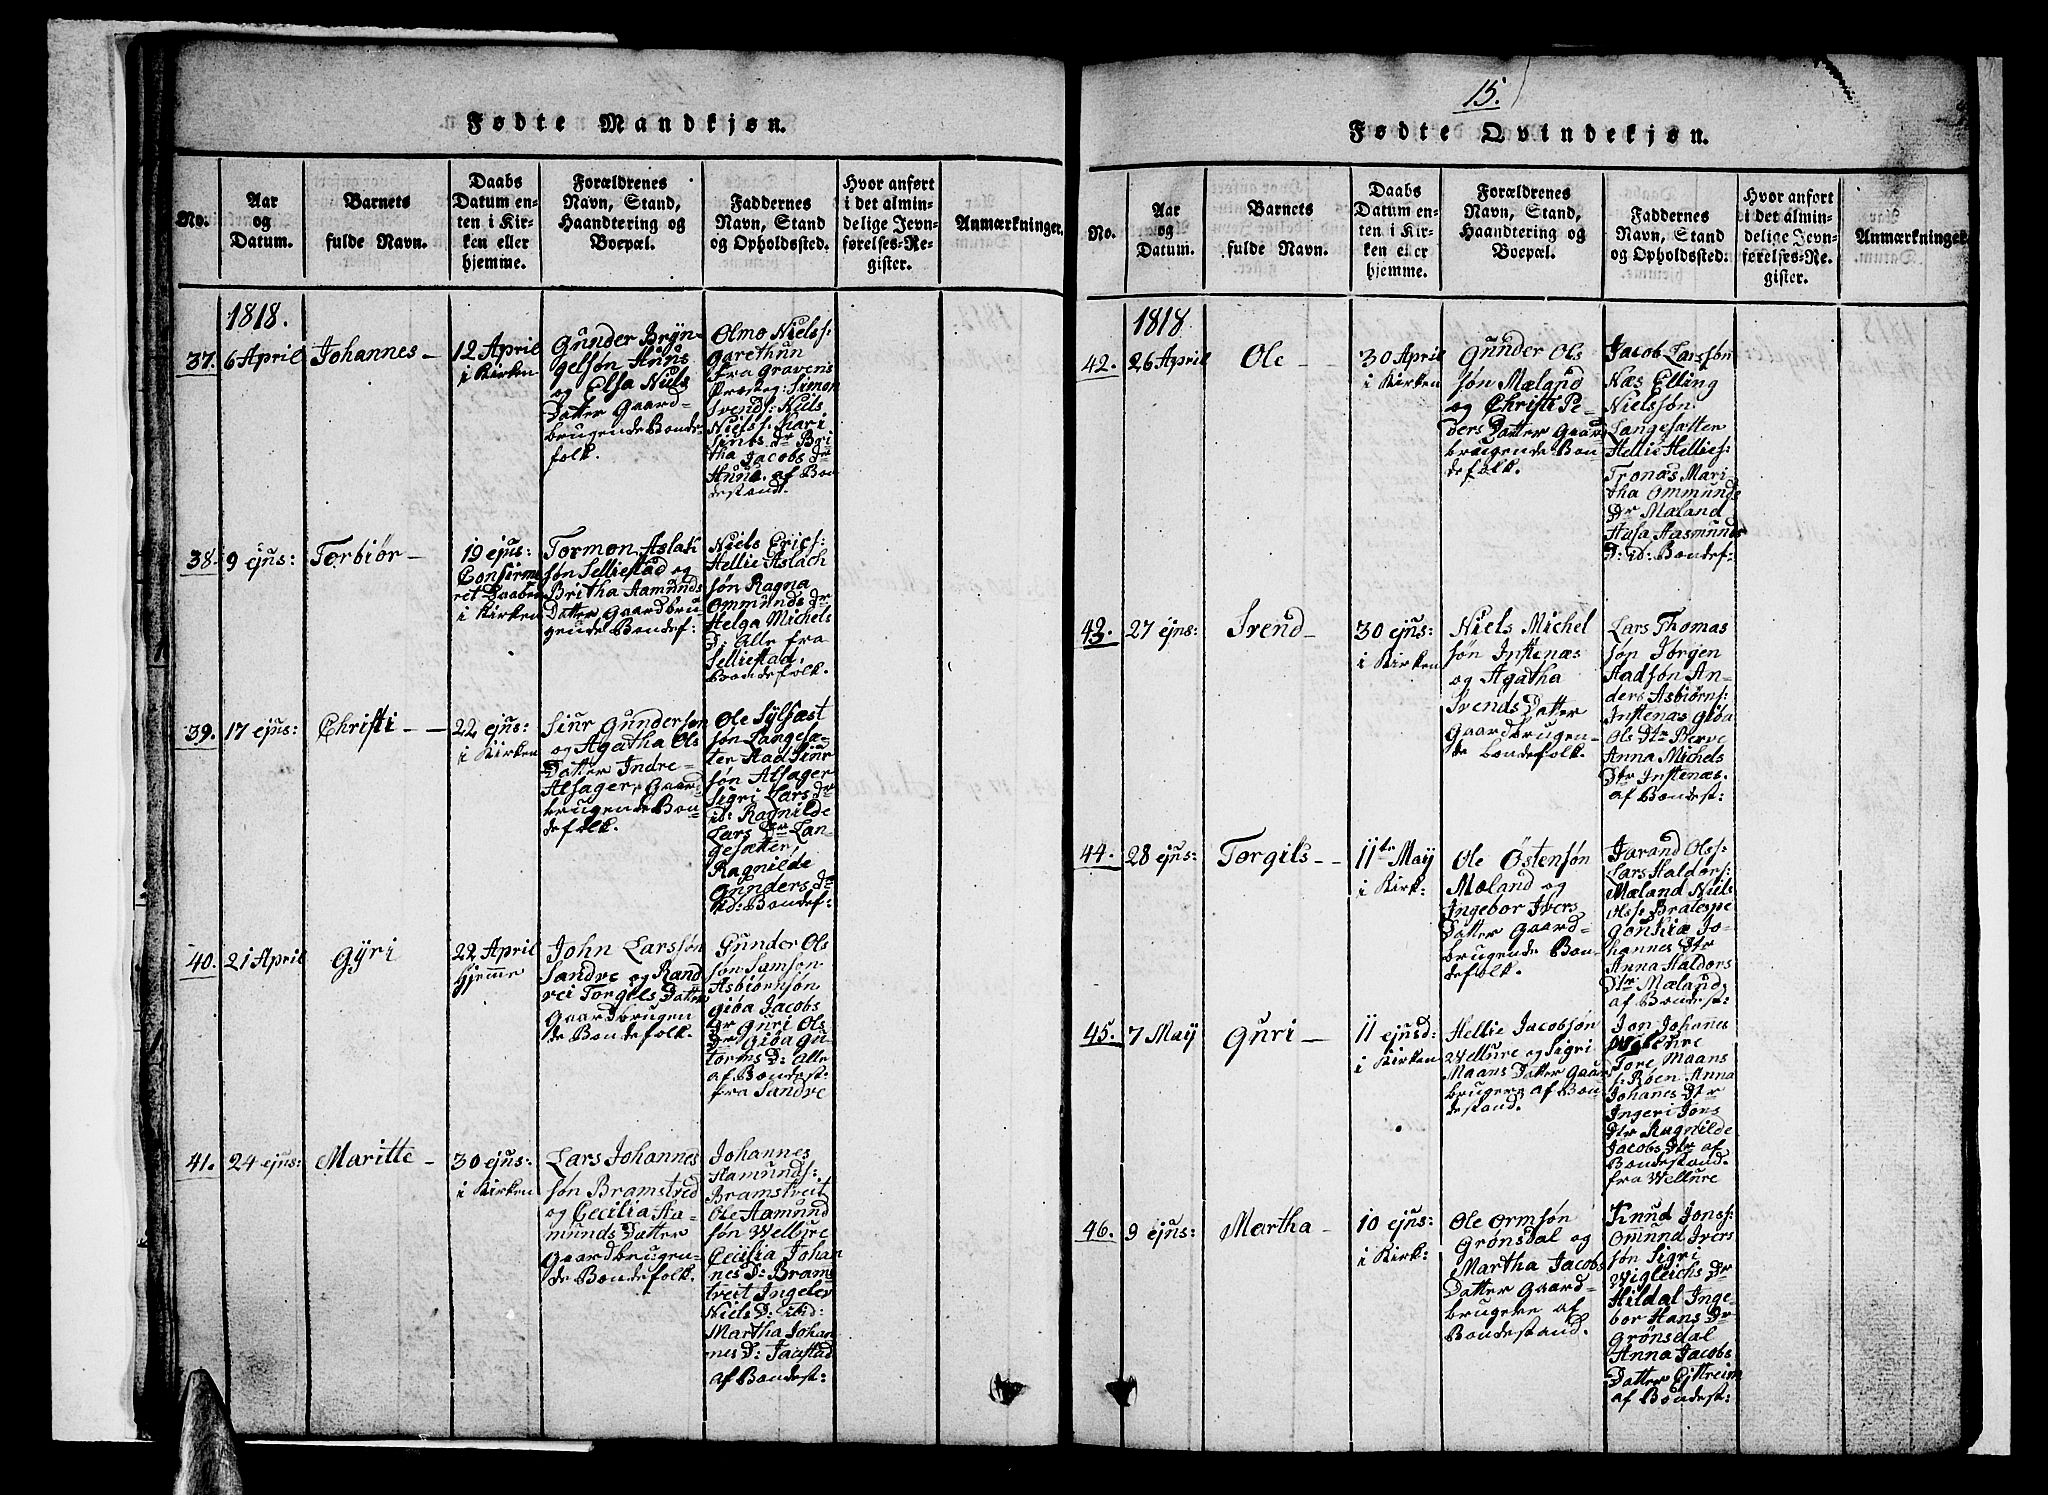 Fødte Mandkjøn.
No.
Aar
og
Datum.
Barnets
fulde Navn.
Daabs
Datum en-
ten i Kir-
ken eller
hjemme.
Forældrenes
Navn, Stand,
Haandtering og
Boepæl.
Faddernes
Navn, Stand
og Opholdssted.
Hvor anført
i det almin-
delige Jevn-
førelses-Re-
gister.
Anmærkninger.
1818.
37. 6 April
Johannes
12 April
i Kirken
Gunder Bryn-
gelsøn Huus
og Elsa Niels
Datter Gaard-
brugende Bonde-
folk.
Olmo Niels:
Garethun
fra Gravens
Præsteg: Simon
Svends: Niels
Niels: Kari
Simbs Dr Bri
tha Jacobs Dr
Huus. af Bon
destand.
38. 9 ejus:
Torbiør
19 ejus:
Confirme
ret Daaben
i Kirken
Tormon Aslak
søn Selliestad og
Britha Aamunds
Datter Gaardbru-
gende Bondef:
Niels Erics:
Hellie Aslach
søn Ragna
Ommunds Dr
Helga Michels
D: Alle fra
Selliestad,
Bondefolk.
39. 17 ejus:
Christi
22 ejus:
i Kirken
Siur Gundersøn
og Agatha Ols
Datter Indre-
Alsager, Gaard
brugende Bon-
defolk.
Ole Sylfæst
søn Langesæ-
ter Aad Siur
søn Alsager
Sigri Lars Dr
id: Ragnilde
Lars Dr Lan-
gesætter,
Ragnilde
Gunders Dr
id: Bondef:
40. 21 April
Gÿri
22 April
Hjemme
John Larssøn
Sandre og Rand
vei Torgils Datter
Gaardbrugen
de Bondefolk.
Gunder Ols
søn Samson
Asbiørnsøn
Giøa Jacobs
Dr Guri Ols
Dr Giøa Gu-
torms D: alle
af Bondest:
fra Sandre
41. 24 ejus:
Maritte
30 ejus:
i Kirken
Lars Johannes
søn Bramstred
og Cecilia Aa-
munds Datter
Gaardbrugen-
de Bondefolk.
Johannes
Aamunds:
Bramstreit
Ole Aamund
søn Wellure
Cecilia Johan
nes D: Brams
treit Ingelev
Niels D: ibid:
Martha Johan
nes D: Jaastad
af Bondest:
15.
Fødte Qvindekjøn.
No.
Aar
og
Datum.
Barnets
fulde Navn.
Daabs
Datum en-
ten i Kir-
ken eller
hjemme.
Forældrenes
Navn, Stand,
Haandtering og
Boepæl.
Faddernes
Navn, Stand
og Opholdssted.
Hvor anført
i det almin-
delige Jevn-
førelses-Re-
gister.
Anmærkninger.
1818
42. 26 April
Ole
30 April
i Kirken
Gunder Ols
søn Mæland
og Christi Pe-
ders Datter Gaard
brugende Bon-
defolk.
Jacob Larssøn
Næs Elling
Nielssøn
Langesæten
Hellie Hellies:
Tronæs Mari
tha Ommunds
Dr Mæland
Aasa Aasmunds
D: id: Bondef:
43. 27 ejus:
Svend
30 ejus:
i Kirken
Niels Michel
søn Instenæs
og Agatha
Svends Datter
Gaardbrugen-
de bondefolk.
Lars Thomas
søn Jørgen
Aadsøn An-
ders Asbiørns:
Instenæs Giøa
Ols Dtr Berve
Anna Michels
Dtr Instenæs.
af Bondest:
44. 28 ejus:
Torgils
11te May
i Kirk:
Ole Østensøn
Mæland og
Ingebor Ivers
Datter Gaard-
brugende Bon
defolk.
Farand Olss:
Lars Haldors:
Mæland Niels
Olss: Bralespe
Gonhiæ Jo-
hannes Dtr
Anna Haldors
Dtr Mæland.
af Bondest:
45. 7 May
Guri
11 ejusd
i Kirken
Hellie Jacobsøn
Wellure og Sigri
Maans Datter Gaard
brugere af Bon
destand.
Jon Johannes
Tore Maans
s: Røen Anna
Johannes Dtr
Ingeri Jons
Dtr Ragnilde
Jacobs Dtr af
Bondestand.
fra Wellure
46. 9 ejus:
Martha
10 ejus:
i Kirk:
Ole Ormsøn
Grønsdal og
Martha Jacobs
Datter Gaard-
brugere af
Bondestand.
Knud Jonss:
Omund Ivers
søn Sigri
Wigleichs Dr
Hildal Inge-
bor Hans Dr
Grønsdal
Anna Jacobs
Datter Eittreim
af Bondest: